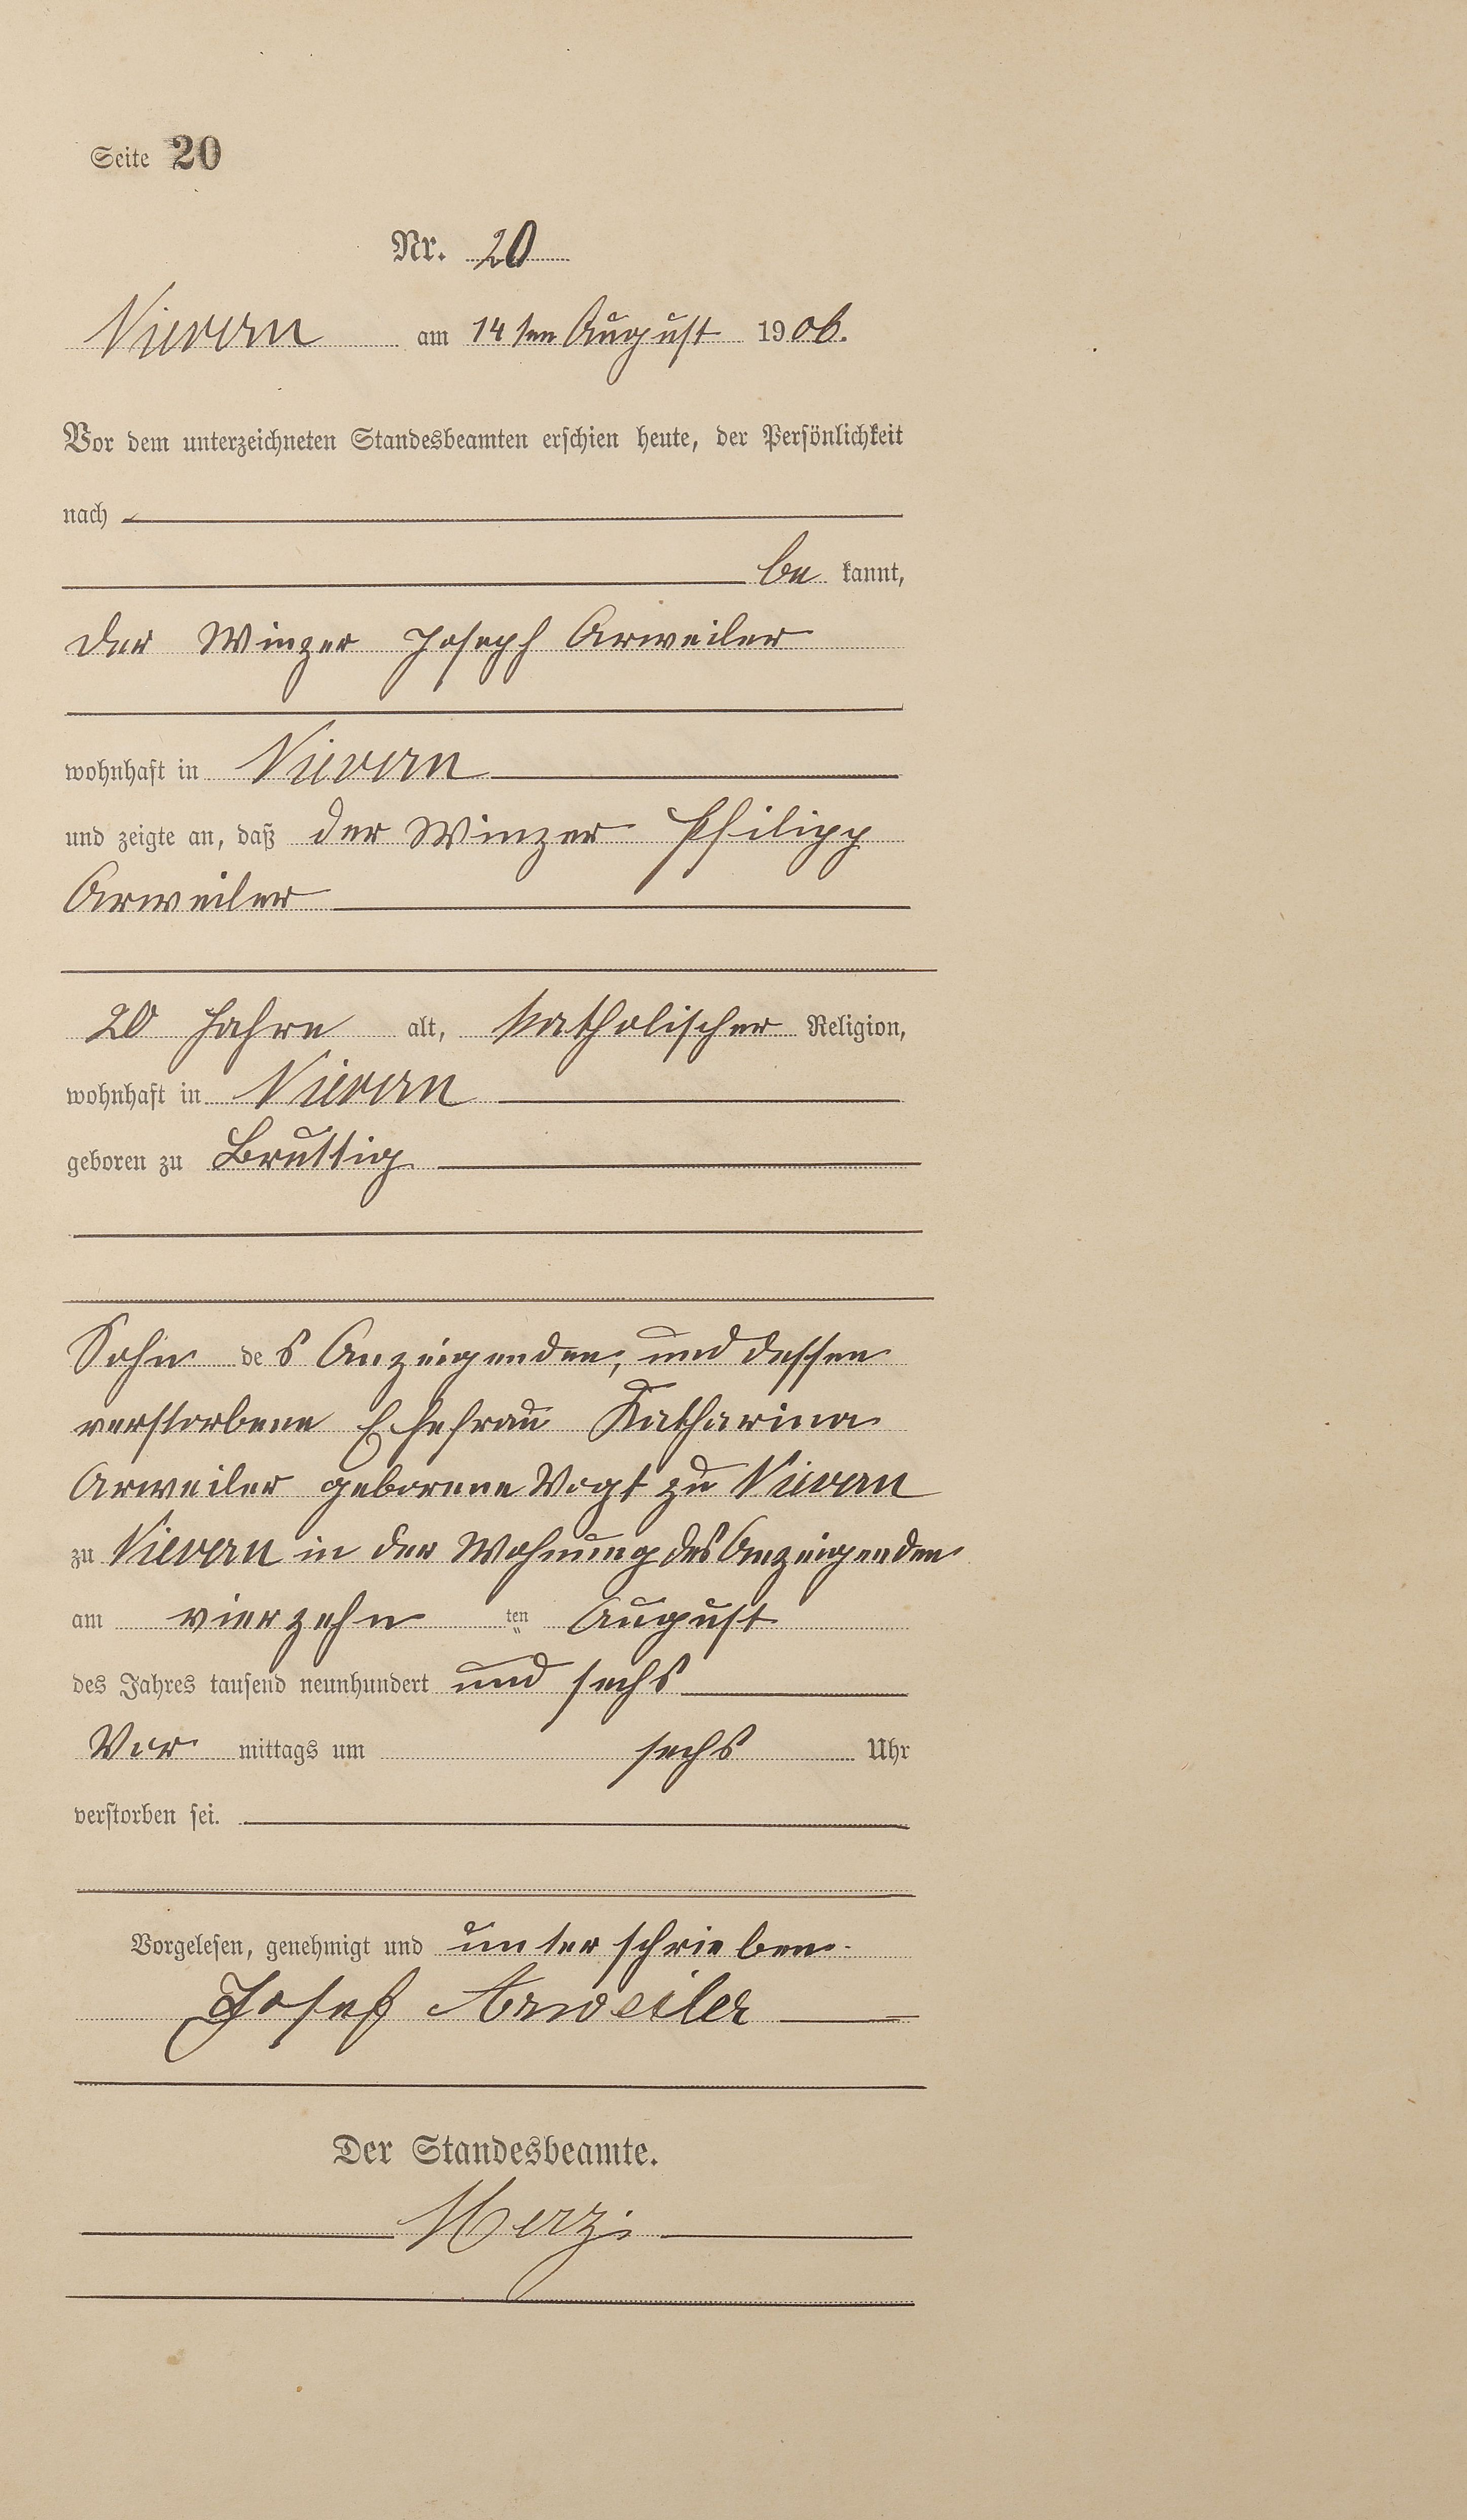 Seite 20
Nr. 20
Nievern am 14ten August 1906.
Vor dem unterzeichneten Standesbeamten erschien heute, der Persönlichkeit
nach
be kannt,
der Winzer Joseph Arweiler
wohnhaft in Nievern
und zeigte an, daß der Winzer Philipp
Arweiler
20 Jahre alt, katholischer Religion,
wohnhaft in Nievern
geboren zu Bruttig
Sohn des Anzeigenden, und dessen
verstorbene Ehefrau Katharina
Arweiler geborene Vogt zu Nievern
zu Nievern in der Wohnung des Anzeigenden
am vierzehn ten August
des Jahres tausend neunhundert und sechs
Vor mittags um sechs Uhr
verstorben sei.
Vorgelesen, genehmigt und unterschrieben.
Josef Arweiler
Der Standesbeamte.
Merz